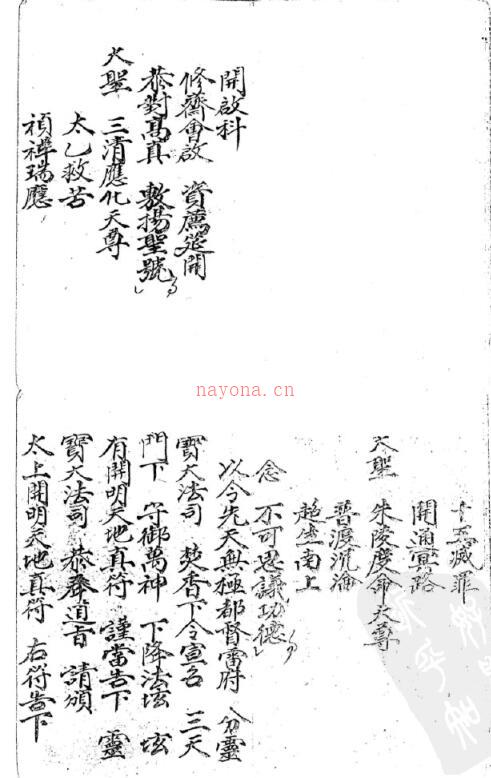 開啟科
修齋會啟　資薦筵開
恭對高真　敷揚聖號
大聖　三清應化天尊
太乙救苦
禎祥瑞應
滅罪
開通冥路
大聖　朱陵度命天尊
普渡沉淪
超生南上
念　不可思議功德
以今先天無極都督雷府　分靈
寶大法司　焚香下令宣名　三天
門下　守御萬神　下降法坛　坛
有開明天地真符　謹當告下　靈
寶大法司　恭奉道旨　請頒
太上開明天地真符　右符告下
nayona.cn